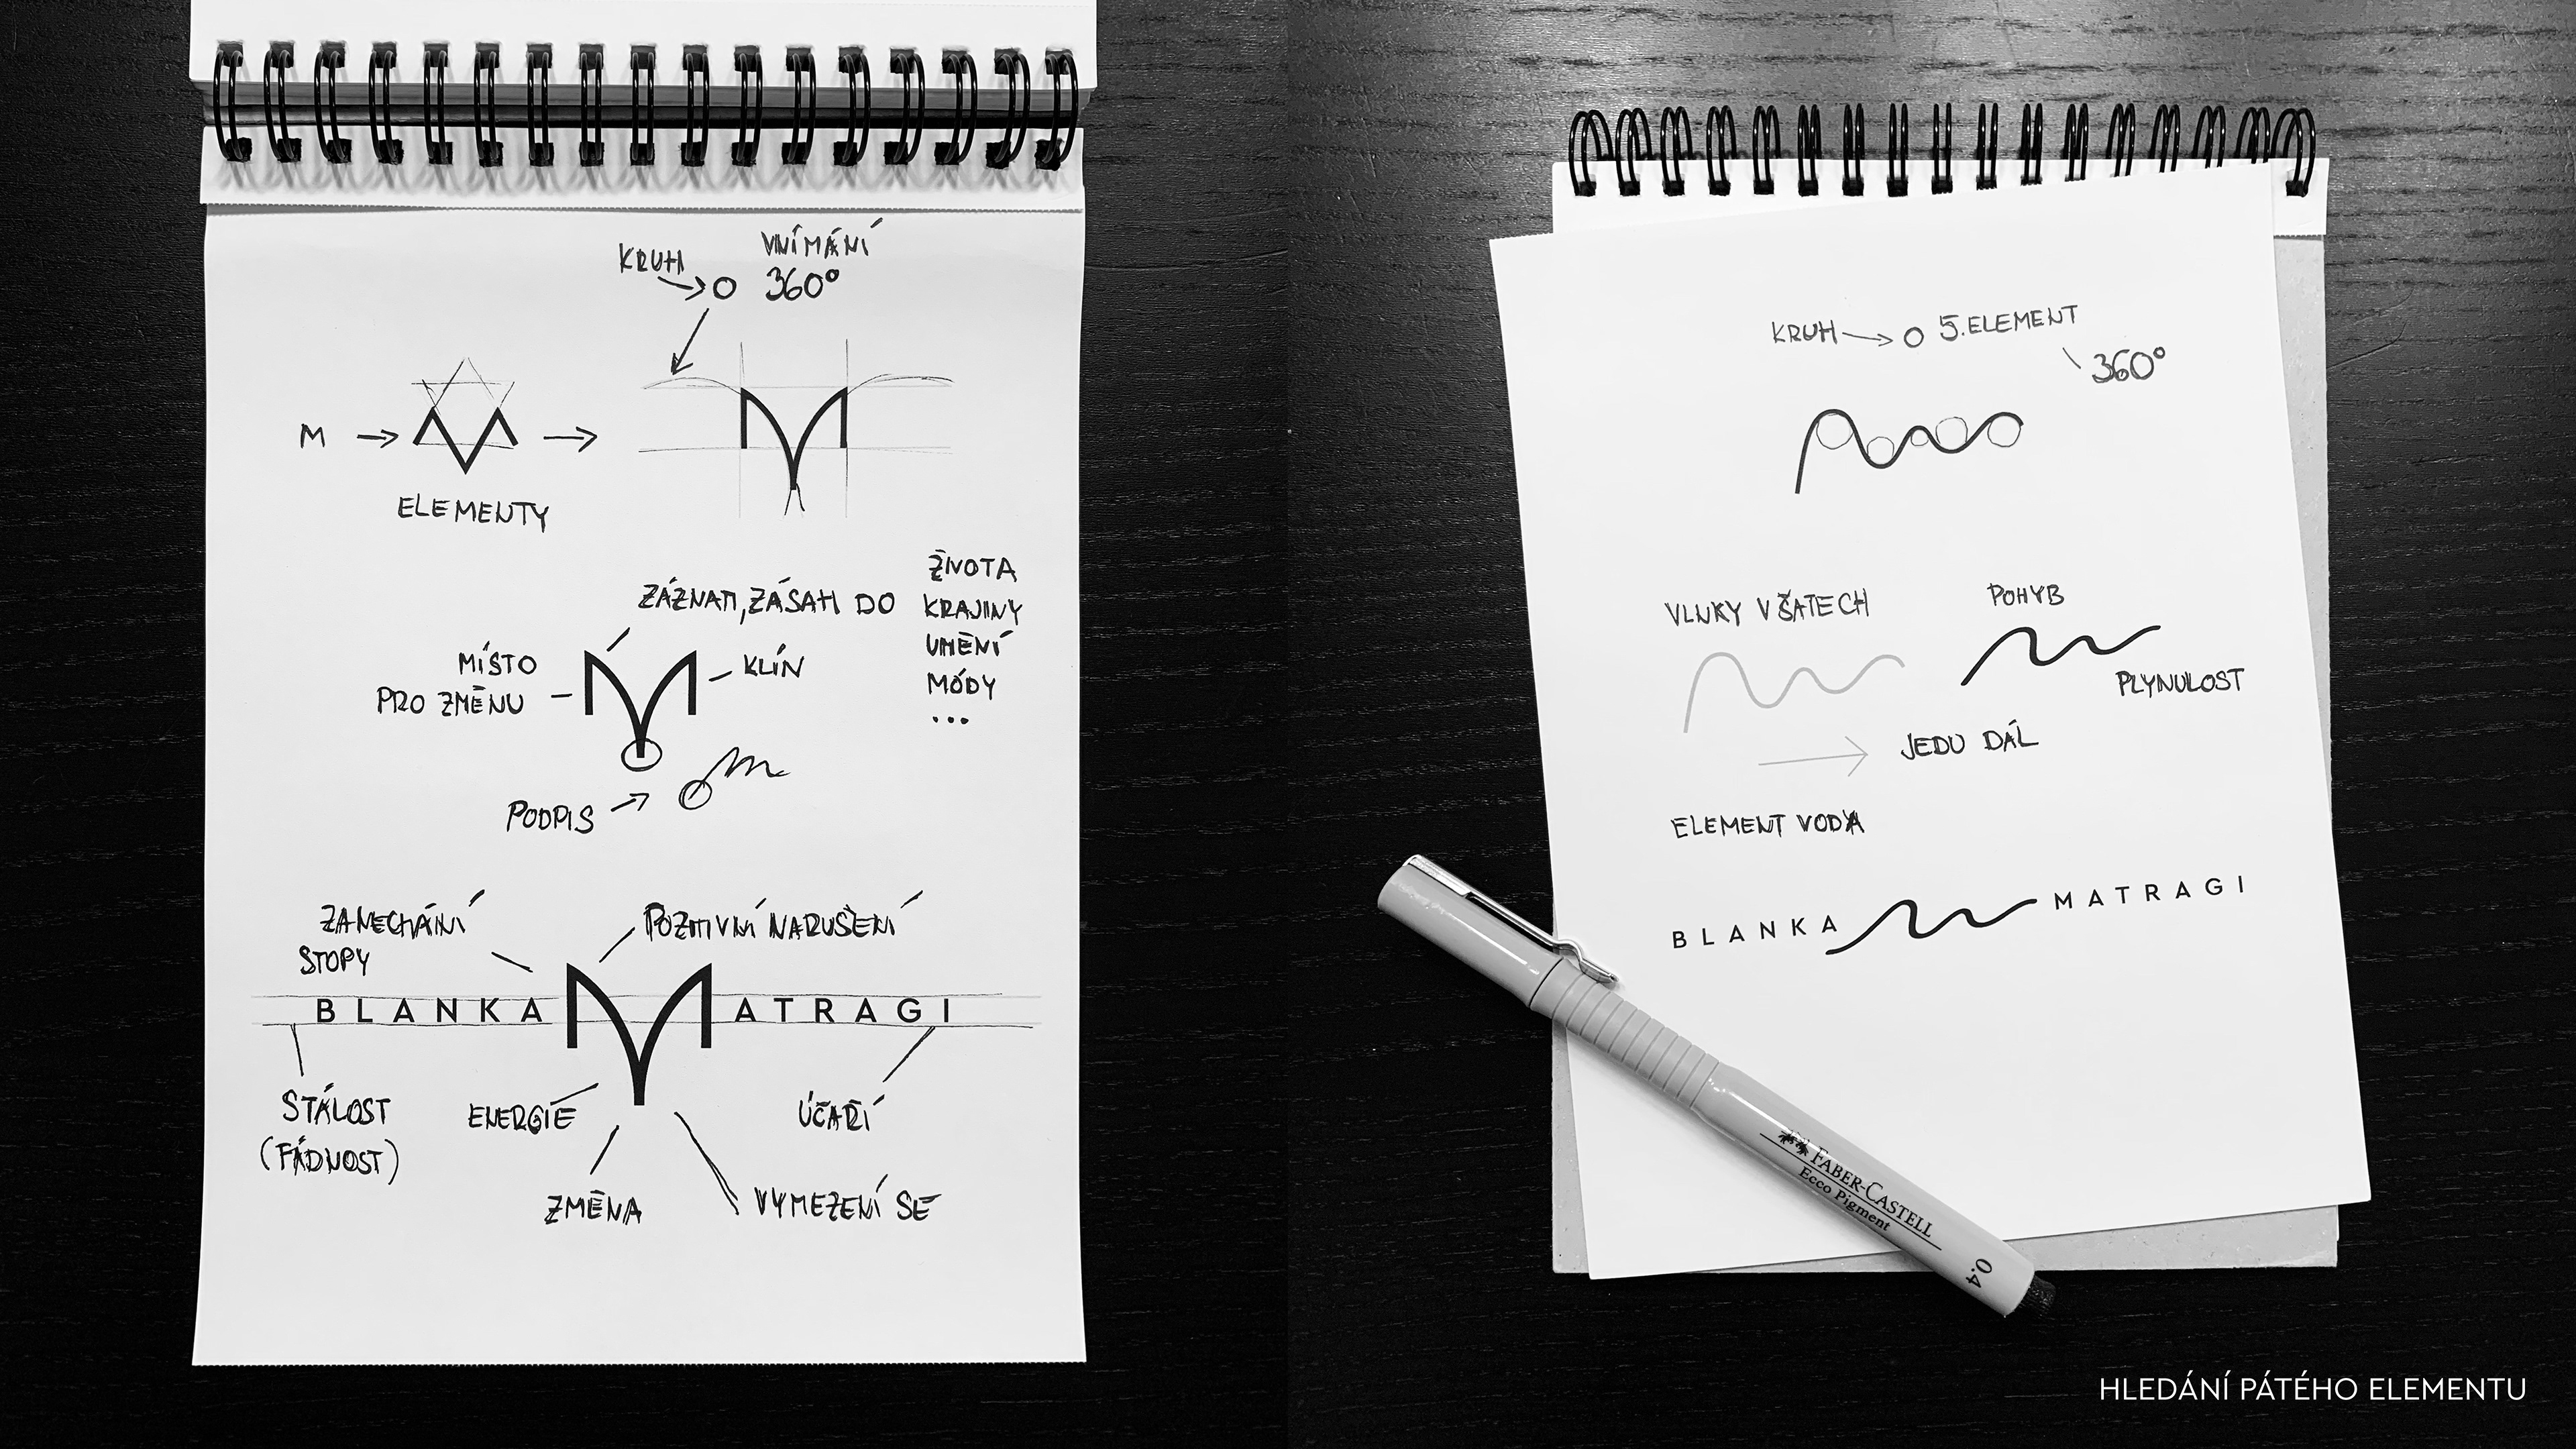 KRUH
VNÍMÁNÍ
360°
M
ELEMENTY
ZÁZNAM, ZÁSAH DO
ŽIVOTA
KRAJINY
UMĚNÍ
MÓDY
...
MÍSTO
PRO ZMĚNU
KLÍN
PODPIS
ZANECHÁNÍ
STOPY
POZITIVNÍ NARUŠENÍ
BLANKA MATRAGI
STÁLOST
(FÁDNOST)
ENERGIE
ÚČAŘÍ
ZMĚNA
VYMEZENÍ SE
KRUH
5. ELEMENT
360°
VLNKY V ŠATECH
POHYB
PLYNULOST
JEDU DÁL
ELEMENT VODA
BLANKA MATRAGI
FABER-CASTELL
Ecco Pigment
0.4
HLEDÁNÍ PÁTÉHO ELEMENTU